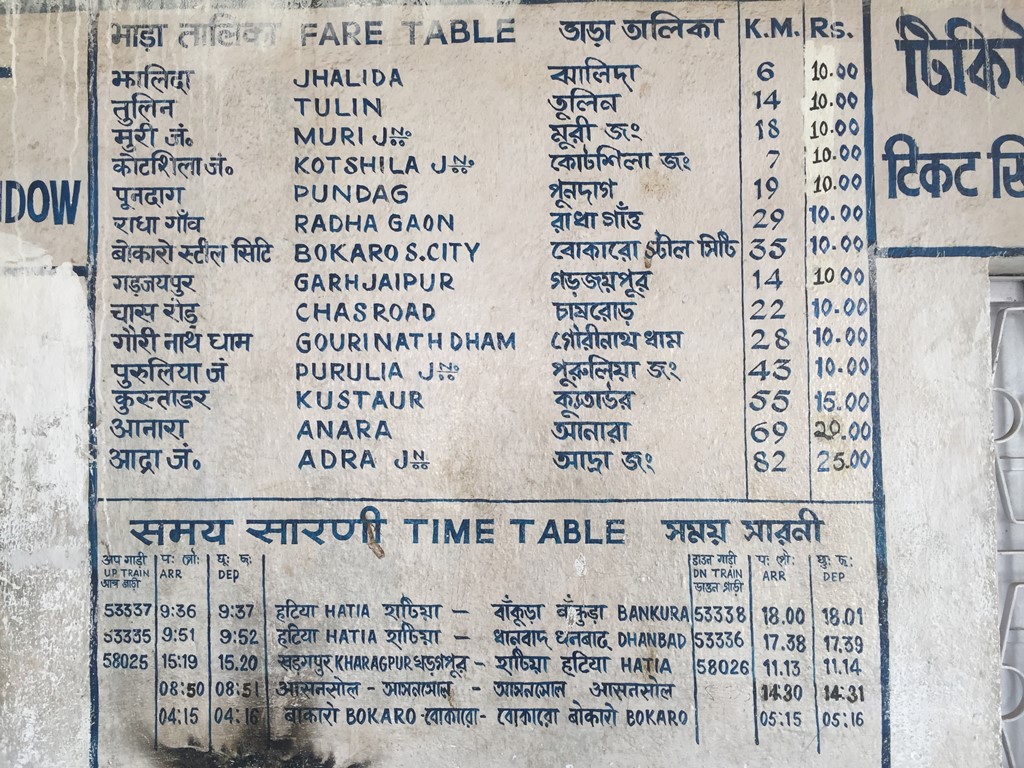 भाड़ा तालिका FARE TABLE ভাড়া তালিকা K.M. Rs.
झालिदा JHALIDA ঝালিদা 6 10.00
तुलिन TULIN তুলিন 14 10.00
मुरी जं. MURI JN. মুরী জং 18 10.00
कोटशिला जं. KOTSHILA JN. কোটশিলা জং 7 10.00
पुनदाग PUNDAG পুনদাগ 19 10.00
राधा गाँव RADHA GAON রাধা গাঁও 29 10.00
बोकारो स्टील सिटि BOKARO S.CITY বোকারো স্টীল সিটি 35 10.00
गड़जयपुर GARHJAIPUR গড়জয়পুর 14 10.00
चास रोड़ CHASROAD চাষরোড় 22 10.00
गौरी नाथ धाम GOURINATH DHAM গৌরীনাথ ধাম 28 10.00
पुरुलिया जं PURULIA JN. পুরুলিয়া জং 43 10.00
कुस्ताउर KUSTAUR 55 15.00
आनारा ANARA আনারা 69 20.00
आद्रा जं. ADRA JN. আদ্রা জং 82 25.00
टिकट
DOW
समय सारणी TIME TABLE সময় সারনী
अप गाड़ी UP TRAIN আপ গাড়ী ARR DEP डाउन गाड़ी DN TRAIN ডাউন গাড়ী ARR DEP
53337 9:36 9:37 हटिया HATIA হাটিয়া – বাঁকুড়া बाँकुड़ा BANKURA 53338 18.00 18.01
53335 9:51 9:52 हटिया HATIA হাটিয়া – ধানবাদ धनबाद DHANBAD 53336 17.38 17.39
58025 15:19 15.20 खड़गपुर KHARAGPUR খড়গপুর – হাটিয়া हटिया HATIA 58026 11.13 11.14
08:50 08:51 आसनसोल - আসানসোল - আসানসোল आसनसोल 14:30 14:31
04:15 04:16 बोकारो BOKARO - বোকারো - বোকারো बोकारो BOKARO 05:15 05:16